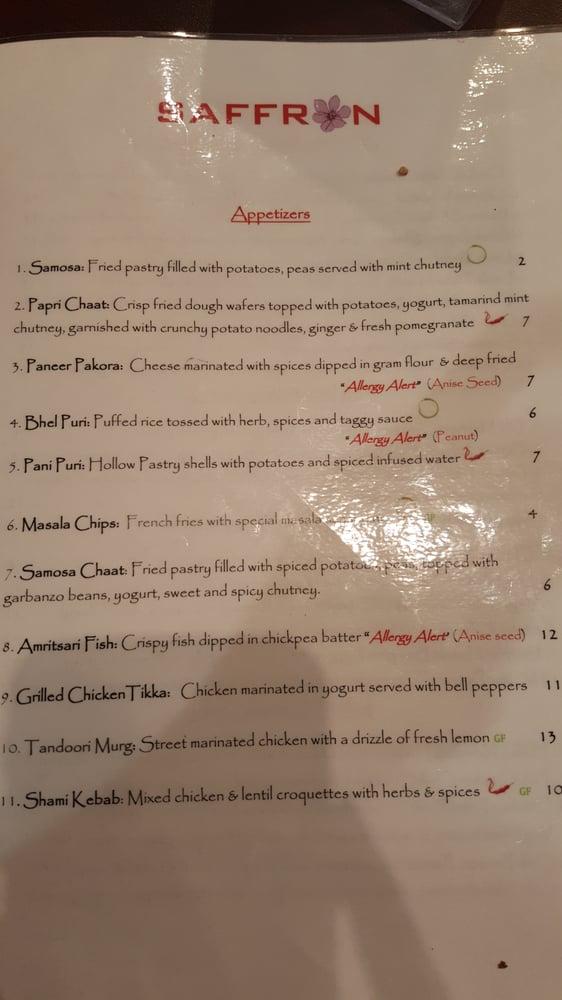 SAFFRON
Appetizers
1. Samosa: Fried pastry filled with potatoes, peas served with mint chutney 2
2. Papri Chaat: Crisp fried dough wafers topped with potatoes, yogurt, tamarind mint
chutney, garnished with crunchy potato noodles, ginger & fresh pomegranate 7
3. Paneer Pakora: Cheese marinated with spices dipped in gram flour & deep fried
"Allergy Alert" (Anise Seed) 7
4. Bhel Puri: Puffed rice tossed with herb, spices and taggy sauce 6
"Allergy Alert" (Peanut)
5. Pani Puri: Hollow Pastry shells with potatoes and spiced infused water 7
6. Masala Chips: French fries with special masala 4
7. Samosa Chaat: Fried pastry filled with spiced potatoes, peas, topped with
garbanzo beans, yogurt, sweet and spicy chutney. 6
8. Amritsari Fish: Crispy fish dipped in chickpea batter "Allergy Alert" (Anise seed) 12
9. Grilled Chicken Tikka: Chicken marinated in yogurt served with bell peppers 11
10. Tandoori Murg: Street marinated chicken with a drizzle of fresh lemon GF 13
11. Shami Kebab: Mixed chicken & lentil croquettes with herbs & spices GF 10